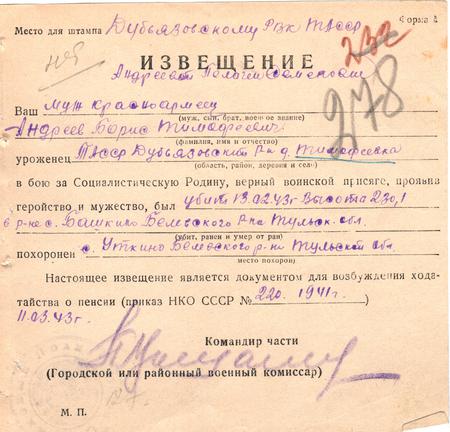 Место для штампа Дубьязовскому Рвк ТАССР Форма 4
232
ИЗВЕЩЕНИЕ
Андреевой Пелагеи Семеновне
278
Ваш муж красноармеец
(муж, сын, брат, военное звание)
Андреев Борис Тимофеевич
(фамилия, имя и отчество)
уроженец ТАССР Дубьязовский р-н д. Тимофеевка
(область, район, деревня и село)
в бою за Социалистическую Родину, верный воинской присяге, проявив
геройство и мужество, был убит 19.02.43г. Высота 230,1
в р-не с. Башкино Белевского р-на Тульск. обл.
(убит, ранен и умер от ран)
похоронен с. Уткино Белевского р-на Тульской обл.
(место похорон)
Настоящее извещение является документом для возбуждения хода-
тайства о пенсии (приказ НКО СССР № 220. 1941г.
11.03.43г.
Командир части
(Городской или районный военный комиссар)
М. П.